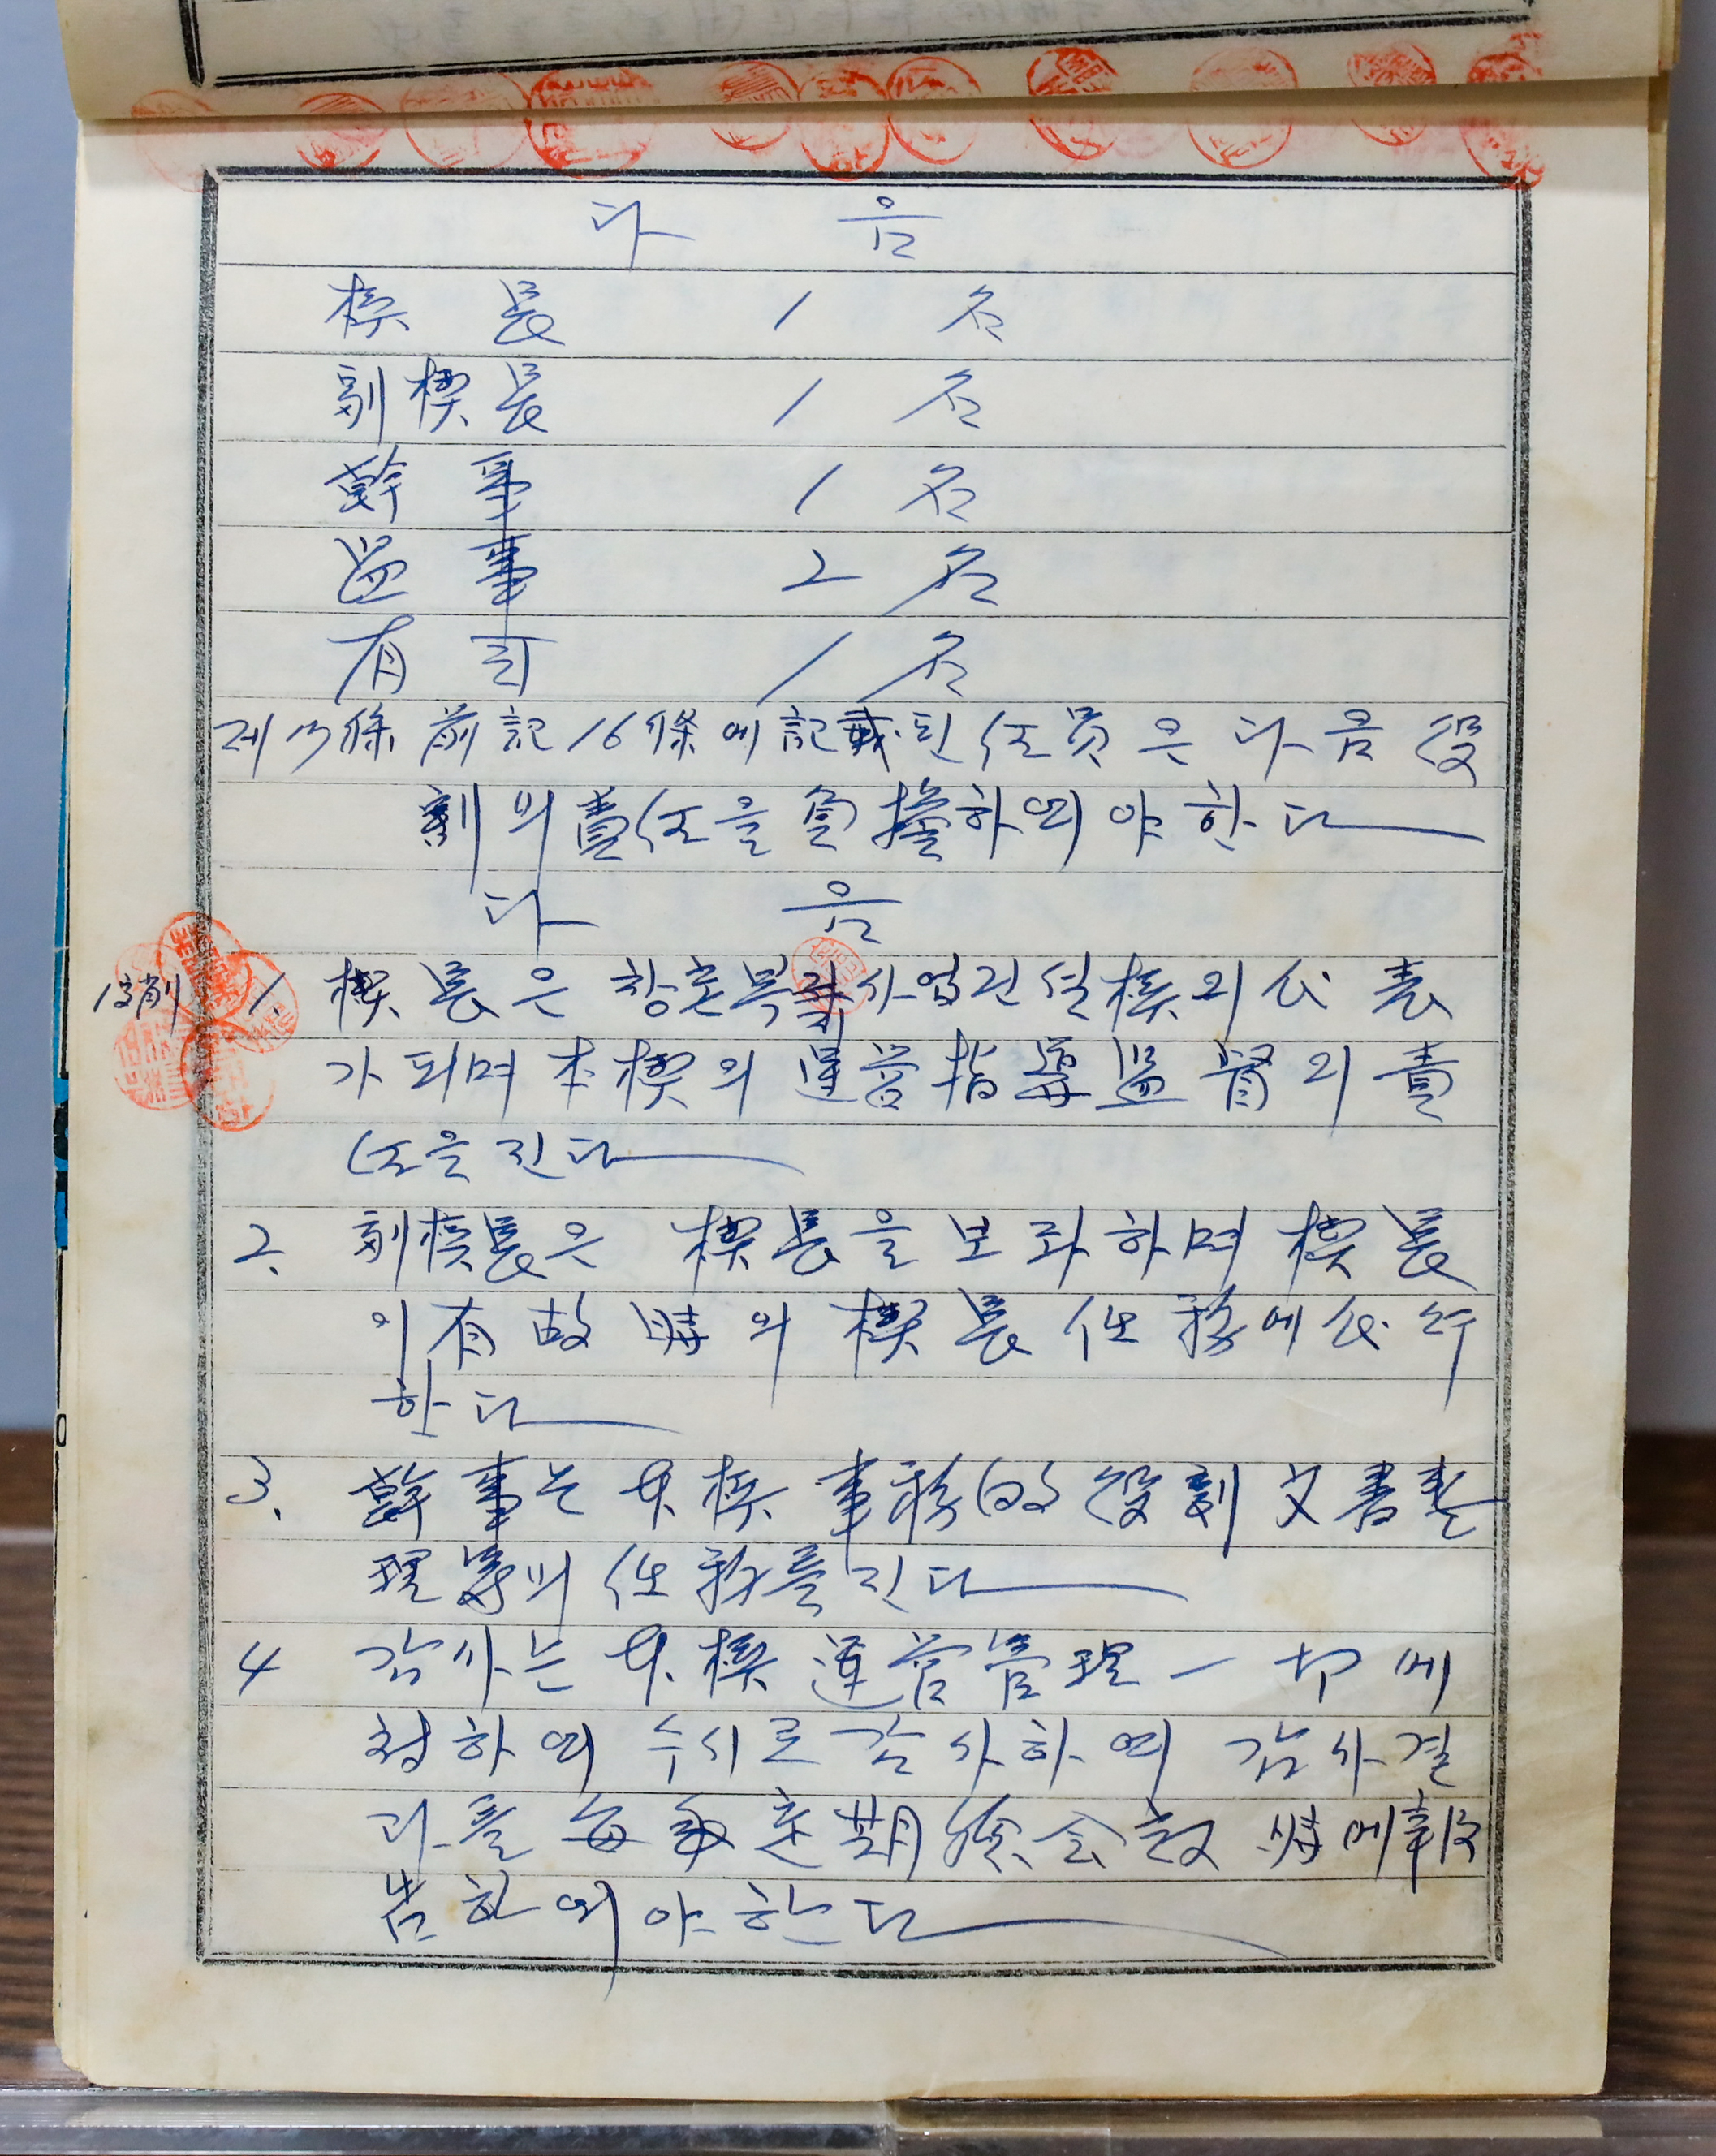 다음
楔長 1名
副楔長 1名
幹事 1名
監事 2名
有司 1名
제17條 前記16條에 記載된 任員은 다음 役
割의 責任을 負擔하여야 한다
다음
1. 楔長은 창촌복사업건설楔의 代表
가 되며 本楔의 運營指導監督의 責
任을 진다
2. 副楔長은 楔長을 보좌하며 楔長
이 有故時의 楔長任務에 代行
하다
3. 幹事는 本楔事務的役割文書整
理等의 任務를 진다
4 감사는 本楔運營管理一切에
청하여 수시로 감사하여 감사결
과를 每年定期總会 時에 報
告하여야 한다